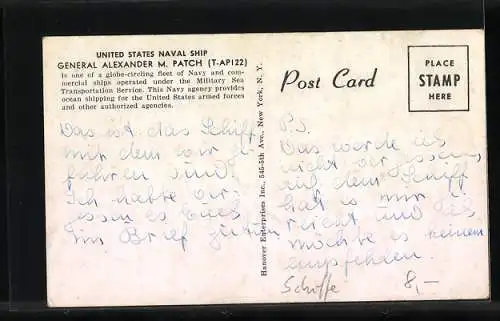 UNITED STATES NAVAL SHIP
GENERAL ALEXANDER M. PATCH (T-AP122)
is one of a globe-circling fleet of Navy and com-
mercial ships operated under the Military Sea
Transportation Service. This Navy agency provides
ocean shipping for the United States armed forces
and other authorized agencies.
Das ist das Schiff
mit dem wir ge-
fahren sind.
Ich hatte ver-
gessen es Euch
im Brief
Hanover Enterprises Inc., 545-5th Ave., New York, N. Y.
Post Card
PLACE
STAMP
HERE
P.S.
Das werde ich
nicht vergessen
auf dem Schiff
hat es mir ge-
reicht und ich
möchte es keinem
empfehlen.
Schiffe 8,—